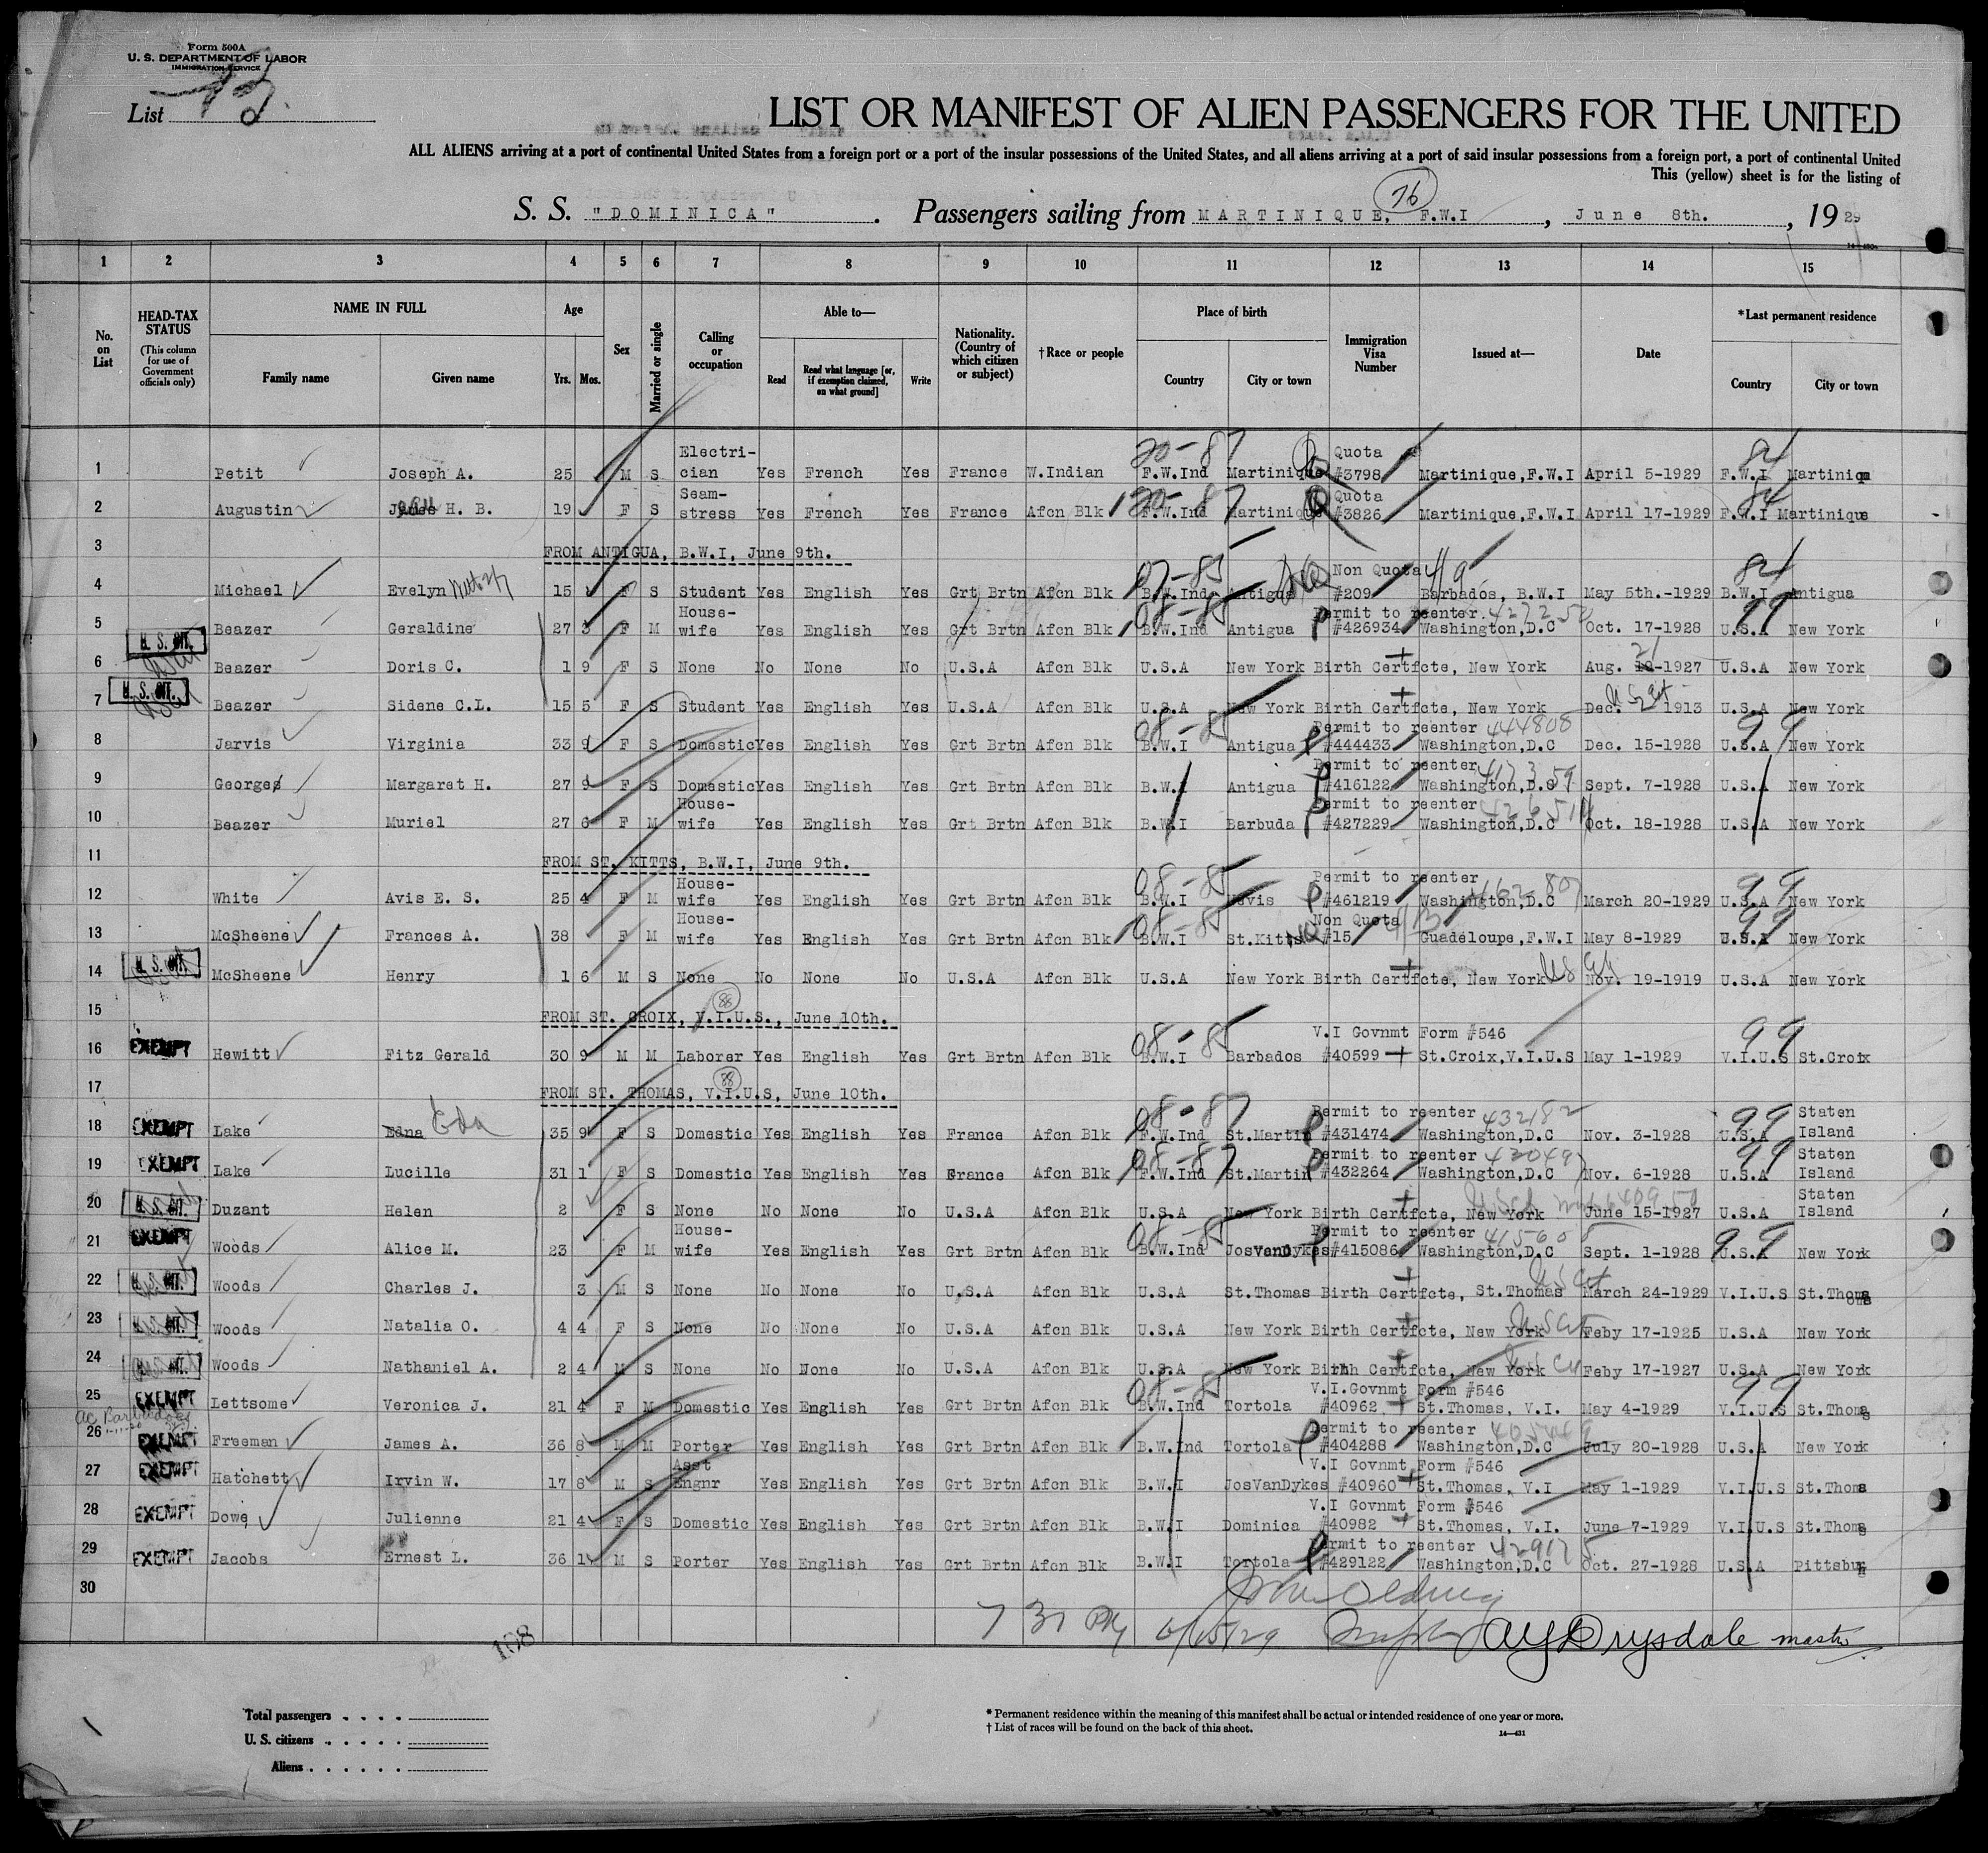 Form 500A
U. S. DEPARTMENT OF LABOR
IMMIGRATION SERVICE
List
LIST OR MANIFEST OF ALIEN PASSENGERS FOR THE UNITED
ALL ALIENS arriving at a port of continental United States from a foreign port or a port of the insular possessions of the United States, and all aliens arriving at a port of said insular possessions from a foreign port, a port of continental United
This (yellow) sheet is for the listing of
76
S. S. "DOMINICA" . Passengers sailing from MARTINIQUE, F.W.I , June 8th. , 1929
1 2 3 4 5 6 7 8 9 10 11 12 13 14 15
No. on List HEAD-TAX STATUS (This column for use of Government officials only) NAME IN FULL Family name Given name Age Yrs. Mos. Sex Married or single Calling or occupation Able to— Read Read what language [or, if exemption claimed, on what ground] Write Nationality. (Country of which citizen or subject) †Race or people Place of birth Country City or town Immigration Visa Number Issued at— Date *Last permanent residence Country City or town
20-87 84
1 Petit Joseph A. 25 M S Electri-cian Yes French Yes France W.Indian F.W.Ind Martinique Quota #3798 Martinique,F.W.I April 5-1929 F.W.I Martiniq
20-87 84
2 Augustin H. B. 19 F S Seam-stress Yes French Yes France Afcn Blk F.W.Ind Martinique Quota #3826 Martinique,F.W.I April 17-1929 F.W.I Martinique
3 FROM ANTIGUA, B.W.I, June 9th.
07-85 84
4 Michael Evelyn 15 F S Student Yes English Yes Grt Brtn Afcn Blk B.W.Ind Antigua Non Quota #209 Barbados, B.W.I May 5th.-1929 B.W.I Antigua
08-85 99
5 Beazer Geraldine 27 3 F M House-wife Yes English Yes Grt Brtn Afcn Blk B.W.Ind Antigua Permit to reenter #426934 Washington,D.C Oct. 17-1928 U.S.A New York
6 U. S. CIT. Beazer Doris C. 1 9 F S None No None No U.S.A Afcn Blk U.S.A New York Birth Certfcte, New York Aug. 21 -1927 U.S.A New York
7 U. S. CIT. Beazer Sidene C.L. 15 5 F S Student Yes English Yes U.S.A Afcn Blk U.S.A New York Birth Certfcte, New York Dec. 1913 U.S.A New York
08-85 444808 99
8 Jarvis Virginia 33 9 F S Domestic Yes English Yes Grt Brtn Afcn Blk B.W.I Antigua Permit to reenter #444433 Washington,D.C Dec. 15-1928 U.S.A New York
9 Georges Margaret H. 27 9 F S Domestic Yes English Yes Grt Brtn Afcn Blk B.W.I Antigua Permit to reenter #416122 Washington,D.C Sept. 7-1928 U.S.A New York
10 Beazer Muriel 27 6 F M House-wife Yes English Yes Grt Brtn Afcn Blk B.W.I Barbuda Permit to reenter #427229 Washington,D.C Oct. 18-1928 U.S.A New York
11 FROM ST. KITTS, B.W.I, June 9th.
08-85 99
12 White Avis E. S. 25 4 F M House-wife Yes English Yes Grt Brtn Afcn Blk B.W.I Nevis Permit to reenter #461219 Washington,D.C March 20-1929 U.S.A New York
08-85 99
13 McSheene Frances A. 38 F M House-wife Yes English Yes Grt Brtn Afcn Blk B.W.I St.Kitts Non Quota #15 Guadeloupe,F.W.I May 8-1929 U.S.A New York
14 U. S. CIT. McSheene Henry 1 6 M S None No None No U.S.A Afcn Blk U.S.A New York Birth Certfcte, New York Nov. 19-1919 U.S.A New York
15 FROM ST. CROIX, V.I.U.S., June 10th.
08-85 99
16 EXEMPT Hewitt Fitz Gerald 30 9 M M Laborer Yes English Yes Grt Brtn Afcn Blk B.W.I Barbados V.I Govnmt Form #546 #40599 St.Croix,V.I.U.S May 1-1929 V.I.U.S St.Croix
17 FROM ST. THOMAS, V.I.U.S, June 10th.
08-87 432182 99
18 EXEMPT Lake Edna Eda 35 9 F S Domestic Yes English Yes France Afcn Blk F.W.Ind St.Martin Permit to reenter #431474 Washington,D.C Nov. 3-1928 U.S.A Staten Island
08-87 99
19 EXEMPT Lake Lucille 31 1 F S Domestic Yes English Yes France Afcn Blk F.W.Ind St.Martin Permit to reenter #432264 Washington,D.C Nov. 6-1928 U.S.A Staten Island
20 U. S. CIT. Duzant Helen 2 F S None No None No U.S.A Afcn Blk U.S.A New York Birth Certfcte, New York June 15-1927 U.S.A Staten Island
08-85 99
21 EXEMPT Woods Alice M. 23 F M House-wife Yes English Yes Grt Brtn Afcn Blk B.W.Ind JosVanDykes Permit to reenter #415086 Washington,D.C Sept. 1-1928 U.S.A New York
22 U. S. CIT. Woods Charles J. 3 M S None No None No U.S.A Afcn Blk U.S.A St.Thomas Birth Certfcte, St.Thomas March 24-1929 V.I.U.S St.Thoms
23 U. S. CIT. Woods Natalia O. 4 4 F S None No None No U.S.A Afcn Blk U.S.A New York Birth Certfcte, New York Feby 17-1925 U.S.A New York
24 U. S. CIT. Woods Nathaniel A. 2 4 M S None No None No U.S.A Afcn Blk U.S.A New York Birth Certfcte, New York Feby 17-1927 U.S.A New York
08-85 99
25 EXEMPT Lettsome Veronica J. 21 4 F M Domestic Yes English Yes Grt Brtn Afcn Blk B.W.Ind Tortola V.I.Govnmt Form #546 #40962 St.Thomas, V.I. May 4-1929 V.I.U.S St.Thoms
26 EXEMPT Freeman James A. 36 8 M M Porter Yes English Yes Grt Brtn Afcn Blk B.W.Ind Tortola Permit to reenter #404288 Washington,D.C July 20-1928 U.S.A New York
27 EXEMPT Hatchett Irvin W. 17 8 M S Asst Engnr Yes English Yes Grt Brtn Afcn Blk B.W.I JosVanDykes V.I Govnmt Form #546 #40960 St.Thomas, V.I May 1-1929 V.I.U.S St.Thoms
28 EXEMPT Dowe Julienne 21 4 F S Domestic Yes English Yes Grt Brtn Afcn Blk B.W.I Dominica V.I Govnmt Form #546 #40982 St.Thomas, V.I. June 7-1929 V.I.U.S St.Thoms
29 EXEMPT Jacobs Ernest L. 36 1 M S Porter Yes English Yes Grt Brtn Afcn Blk B.W.I Tortola Permit to reenter #429122 Washington,D.C Oct. 27-1928 U.S.A Pittsbur
30
7 30 PM 6/15/29 Drysdale master
108
Total passengers
U. S. citizens
Aliens
* Permanent residence within the meaning of this manifest shall be actual or intended residence of one year or more.
† List of races will be found on the back of this sheet.
14—431